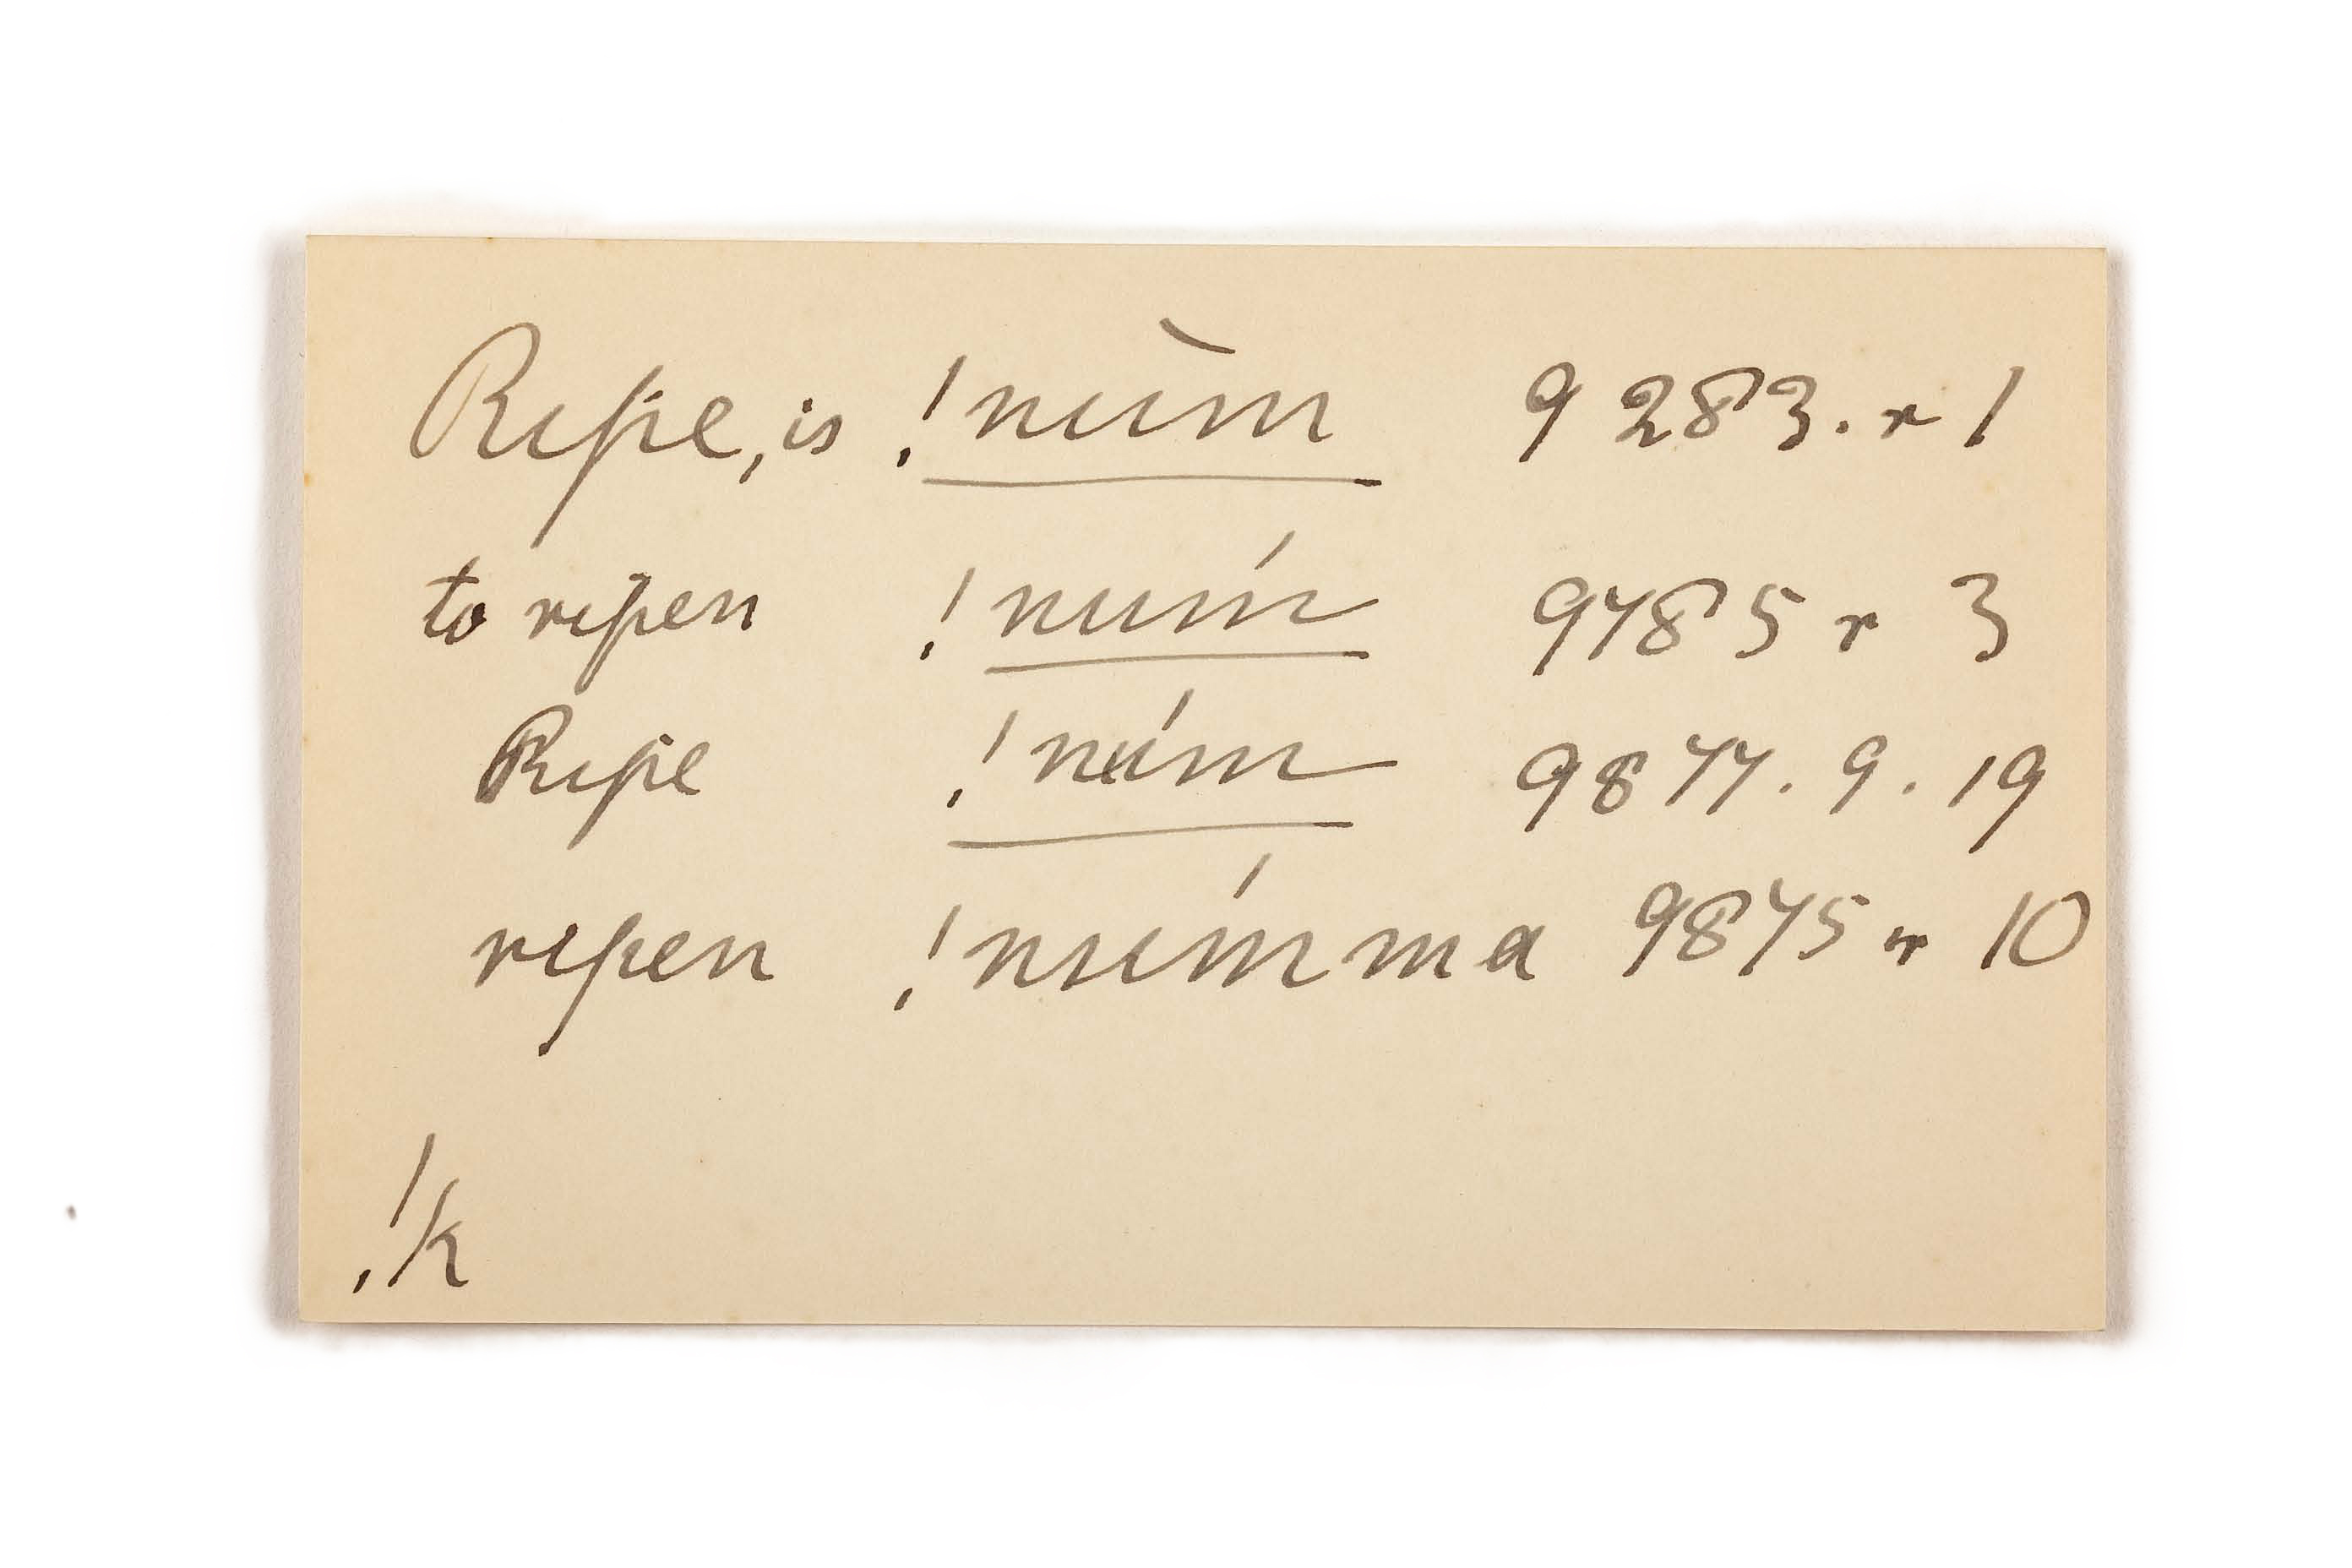 Ripe, is !nùm 9283. r 1
to ripen !núm 9785 r 3
Ripe !núm 9877. 9. 19
ripen !númma 9875 r 10
!k